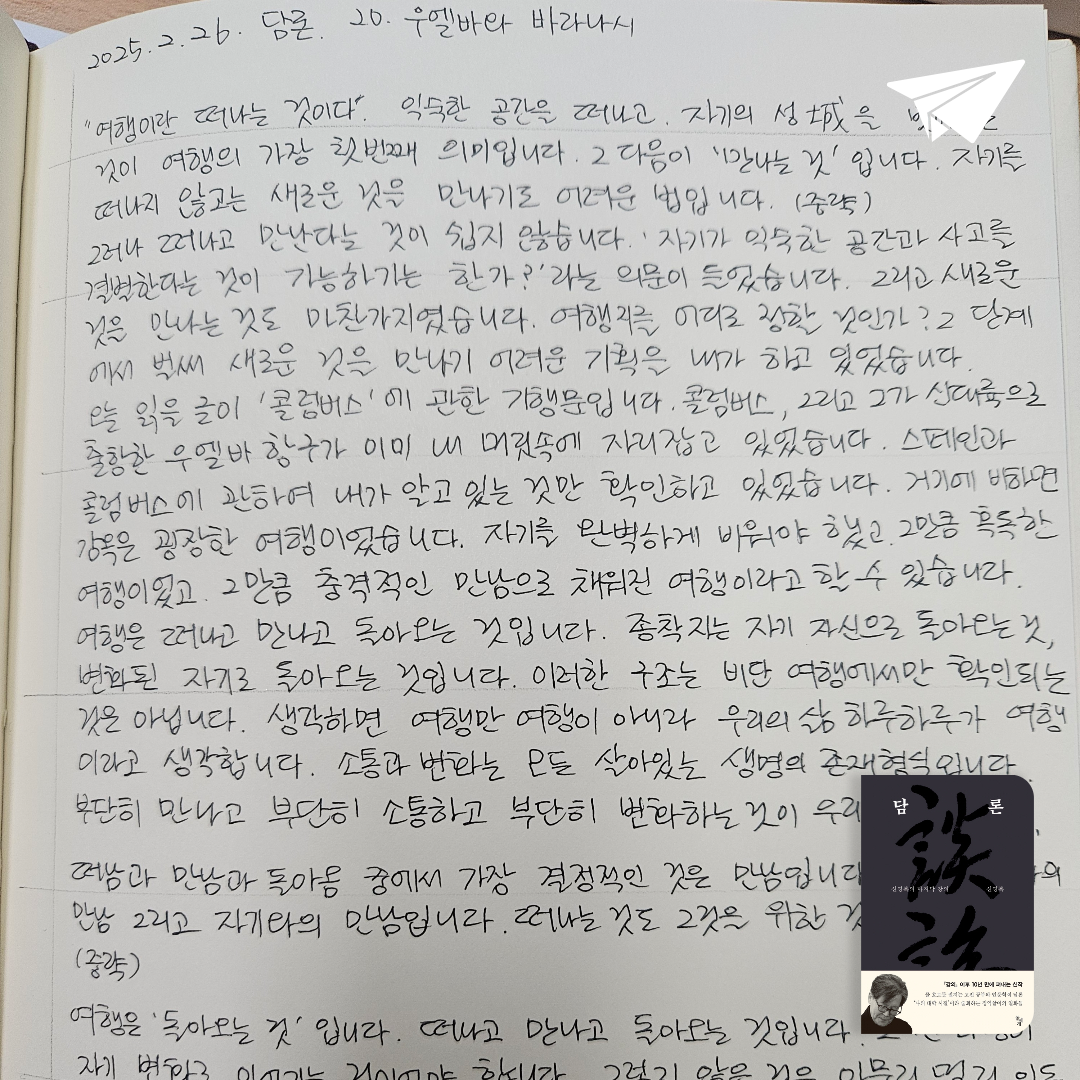 2025.2.26. 담론. 20. 우엘바와 바라나시
"여행이란 떠나는 것이다". 익숙한 공간을 떠나고, 자기의 성城을
것이 여행의 가장 첫번째 의미입니다. 그 다음이 '만나는 것' 입니다. 자기를
떠나지 않고는 새로운 것을 만나기도 어려운 법입니다. (중략)
그러나 떠나고 만난다는 것이 쉽지 않습니다. '자기가 익숙한 공간과 사고를
결별한다는 것이 가능하기는 한가?'라는 의문이 들었습니다. 그리고 새로운
것을 만나는 것도 마찬가지였습니다. 여행지를 어디로 정할 것인가? 그 단계
에서 벌써 새로운 것을 만나기 어려운 기획을 내가 하고 있었습니다.
오늘 읽을 글이 '콜럼버스'에 관한 기행문입니다. 콜럼버스, 그리고 그가 신대륙으로
출항한 우엘바 항구가 이미 내 머릿속에 자리잡고 있었습니다. 스페인과
콜럼버스에 관하여 내가 알고 있는 것만 확인하고 있었습니다. 거기에 비하면
감옥은 굉장한 여행이었습니다. 자기를 완벽하게 비워야 했고, 그만큼 혹독한
여행이었고, 그만큼 충격적인 만남으로 채워진 여행이라고 할 수 있습니다.
여행은 떠나고 만나고 돌아오는 것입니다. 종착지는 자기 자신으로 돌아오는 것,
변화된 자기로 돌아오는 것입니다. 이러한 구조는 비단 여행에서만 확인되는
것은 아닙니다. 생각하면 여행만 여행이 아니라 우리의 삶 하루하루가 여행
이라고 생각합니다. 소통과 변화는 모든 살아있는 생명의 존재형식입니다.
부단히 만나고 부단히 소통하고 부단히 변화하는 것이 우리
떠남과 만남과 돌아옴 중에서 가장 결정적인 것은 만남입니다
만남 그리고 자기와의 만남입니다. 떠나는 것도 그것을 위한 것
(중략)
여행은 '돌아오는 것' 입니다. 떠나고 만나고 돌아오는 것입니다.
자기 변화로 이어지는 것이어야 합니다. 그렇지 않은 것은 아무리 멀리
담론
談論
신영복의 마지막 강의
신영복
『강의』 이후 10년 만에 펴내는 신작